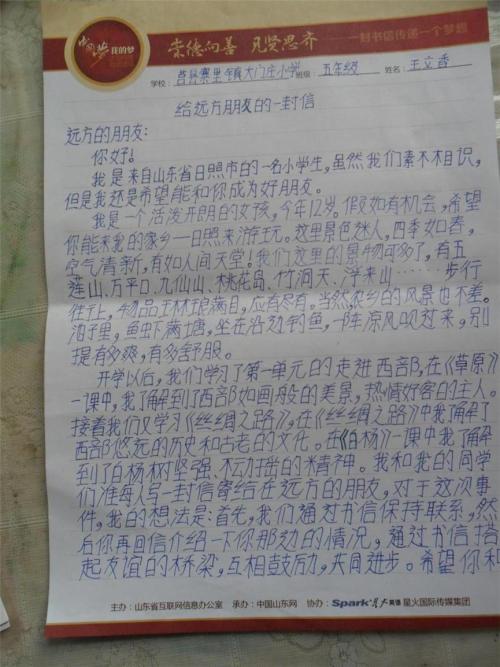 中国梦 我的梦
崇德向善 见贤思齐
一封书信传递一个梦想
学校：莒县寨里镇大门庄小学 班级：五年级 姓名：王立香
给远方朋友的一封信
远方的朋友：
你好！
我是来自山东省日照市的一名小学生，虽然我们素不相识，
但是我还是希望能和你成为好朋友。
我是一个活泼开朗的女孩，今年12岁。假如有机会，希望
你能来我的家乡一日照来游玩。这里景色迷人，四季如春，
空气清新，有如人间天堂！我们这里的景物可多了，有五
莲山、万平口、九仙山、桃花岛、竹洞天、浮来山……步行
街上，物品琳琅满目，应有尽有。当然农乡的风景也不差。
泊子里，鱼虫下满塘，坐在沿边钓鱼，一阵凉风吹过来，别
提有多爽，有多舒服。
开学以后，我们学习了第一单元的走进西部，在《草原》
一课中，我了解到了西部如画般的美景，热情好客的主人。
接着我们又学习《丝绸之路》，在《丝绸之路》中我了解了
西部悠远的历史和古老的文化。在《白杨》一课中我了解
到了白杨树坚强、不动摇的精神。我和我的同学
们准每人写一封信寄给在远方的朋友，对于这次事
件，我的想法是：首先，我们通过书信保持联系，然
后你再回信介绍一下你那边的情况，通过书信搭
起友谊的桥梁，互相鼓励，共同进步。希望你和
主办：山东省互联网信息办公室 承办：中国山东网 协办：Spark星火英语 星火国际传媒集团